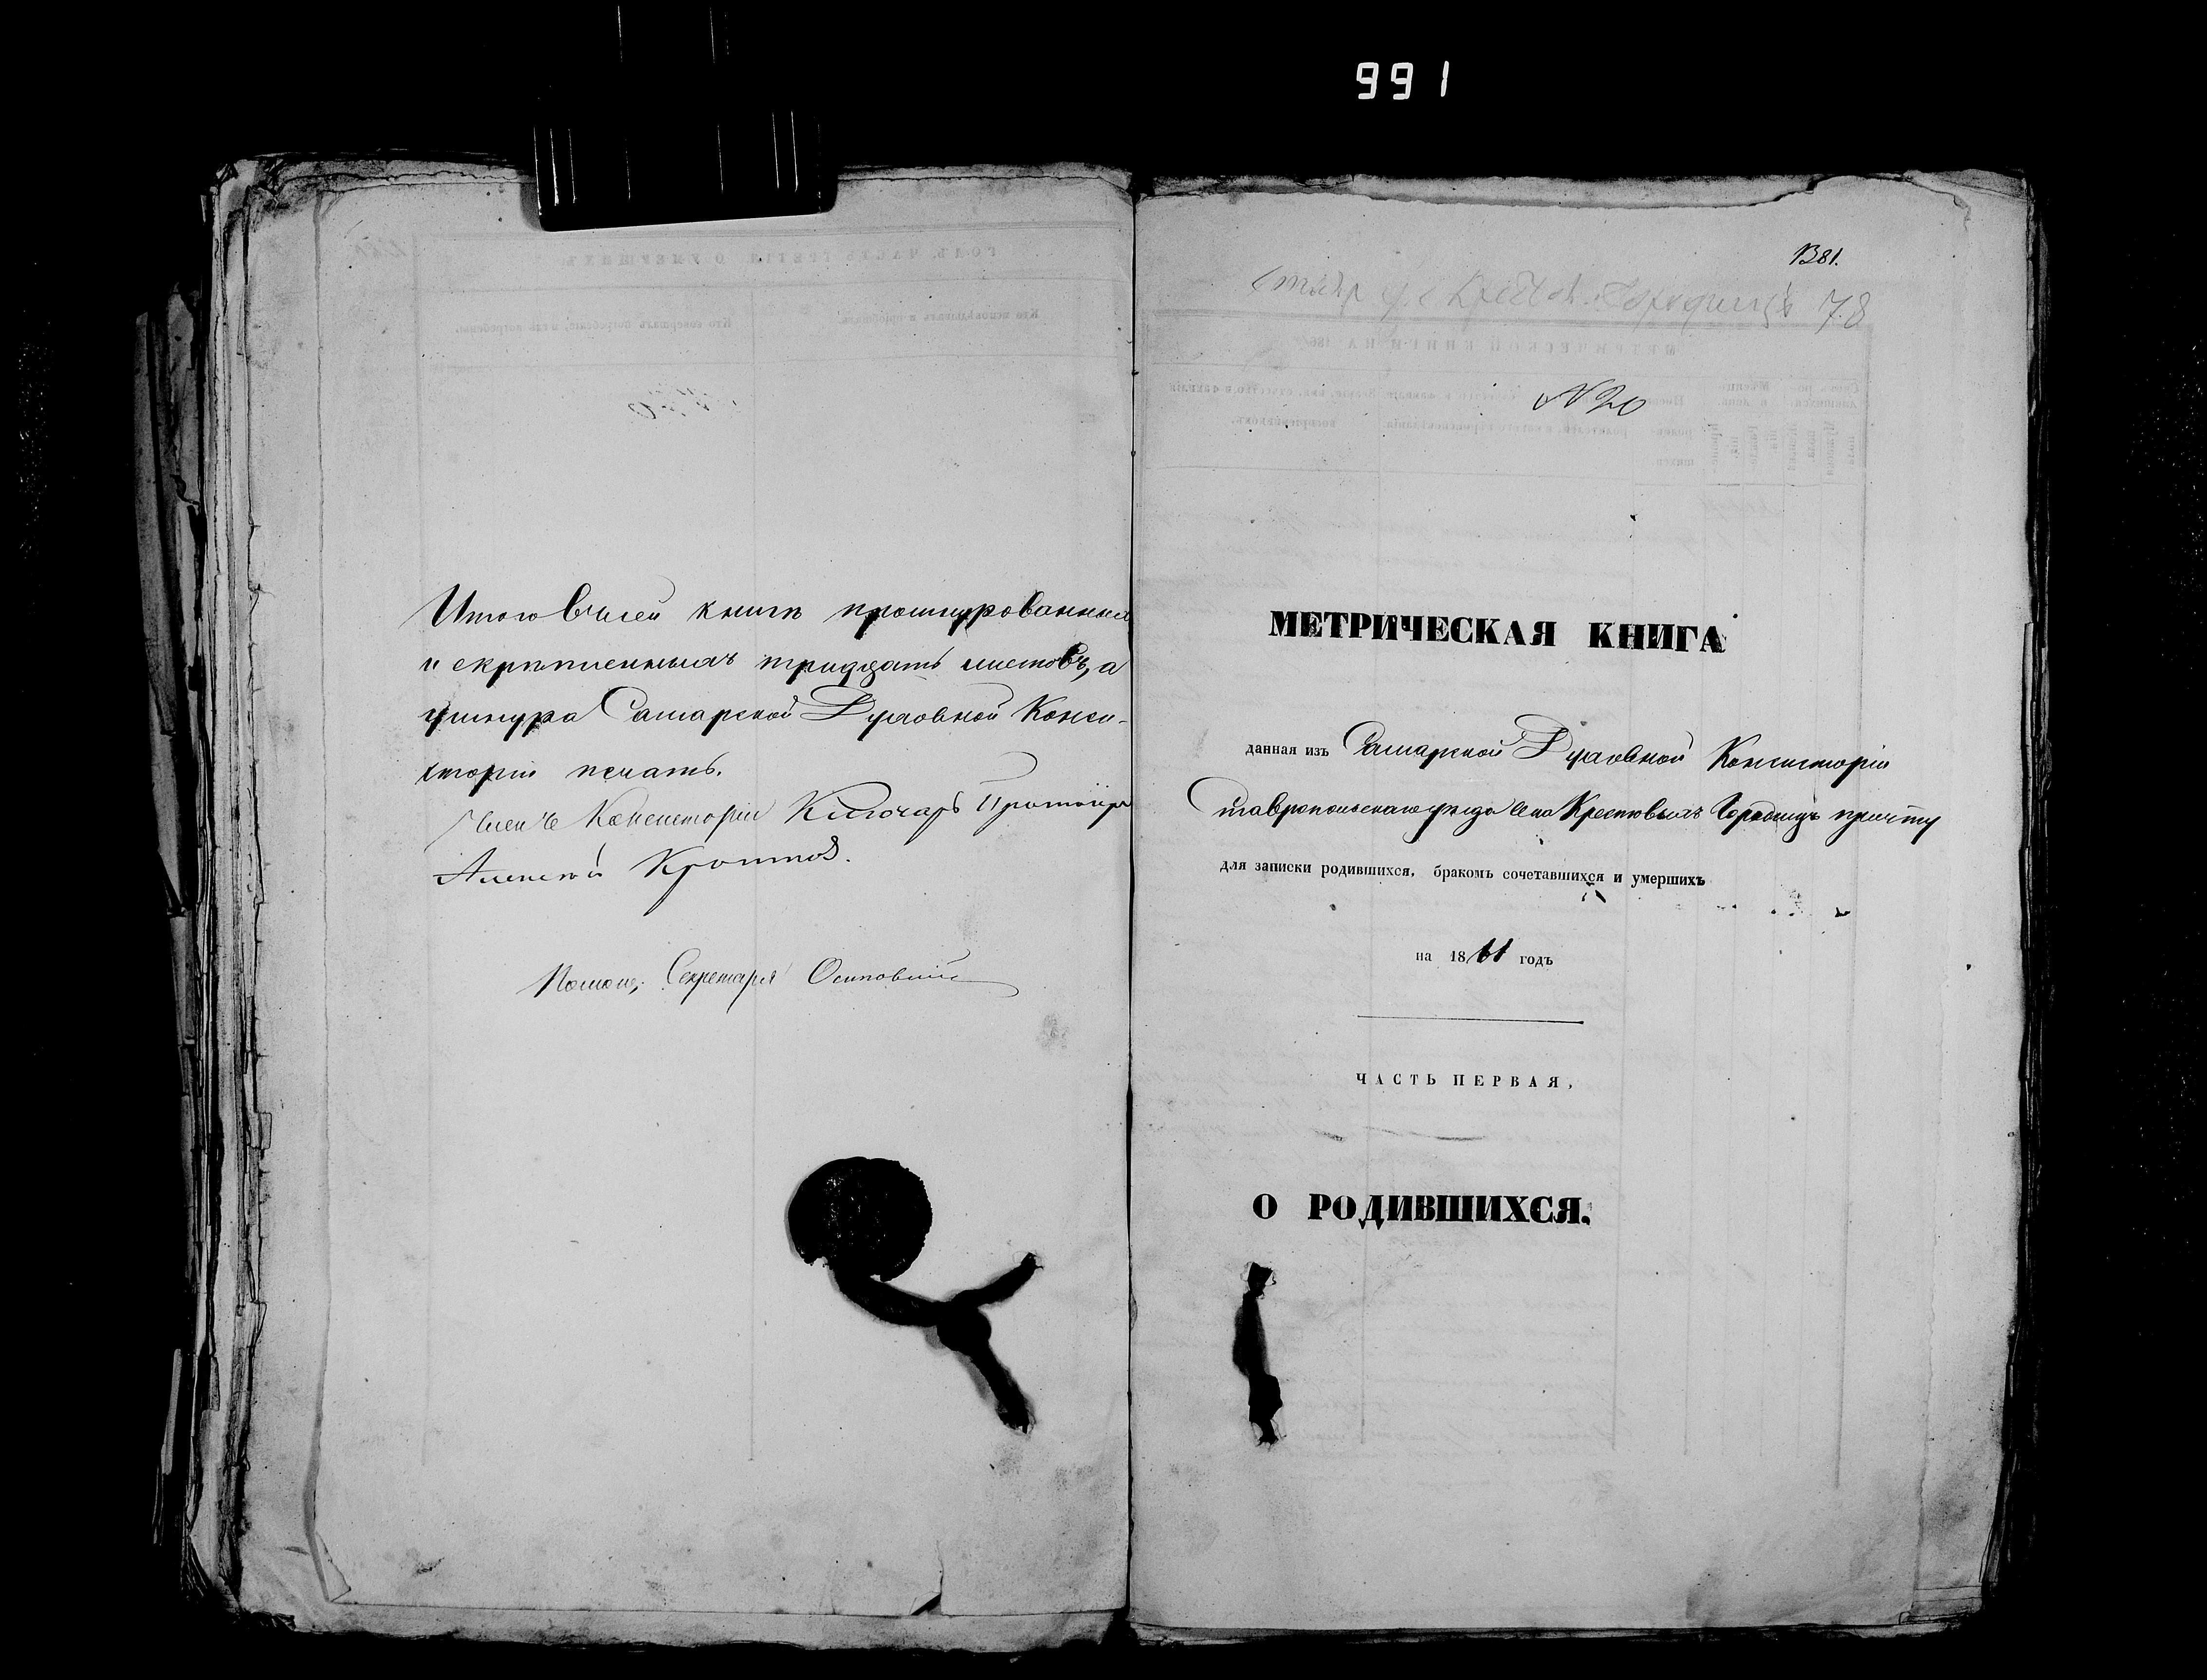 991
Итого въ сей книгѣ прошнурованныхъ
и скрѣпленныхъ тридцать листовъ, а
у шнура Самарской Духовной Конси-
сторіи печать.
Членъ Консисторіи Ключарь Протоіер
Алексѣй Кротков.
Помощ. Секретаря Осиповскій
1381.
Ставр у. с Крестов. Городищъ 78
№ 20
МЕТРИЧЕСКАЯ КНИГА
данная изъ Самарской Духовной Консисторіи
Ставропольскаго уѣзда села Крестовыхъ Городищъ причту
для записки родившихся, бракомъ сочетавшихся и умершихъ
на 1861 годъ
ЧАСТЬ ПЕРВАЯ,
О РОДИВШИХСЯ.